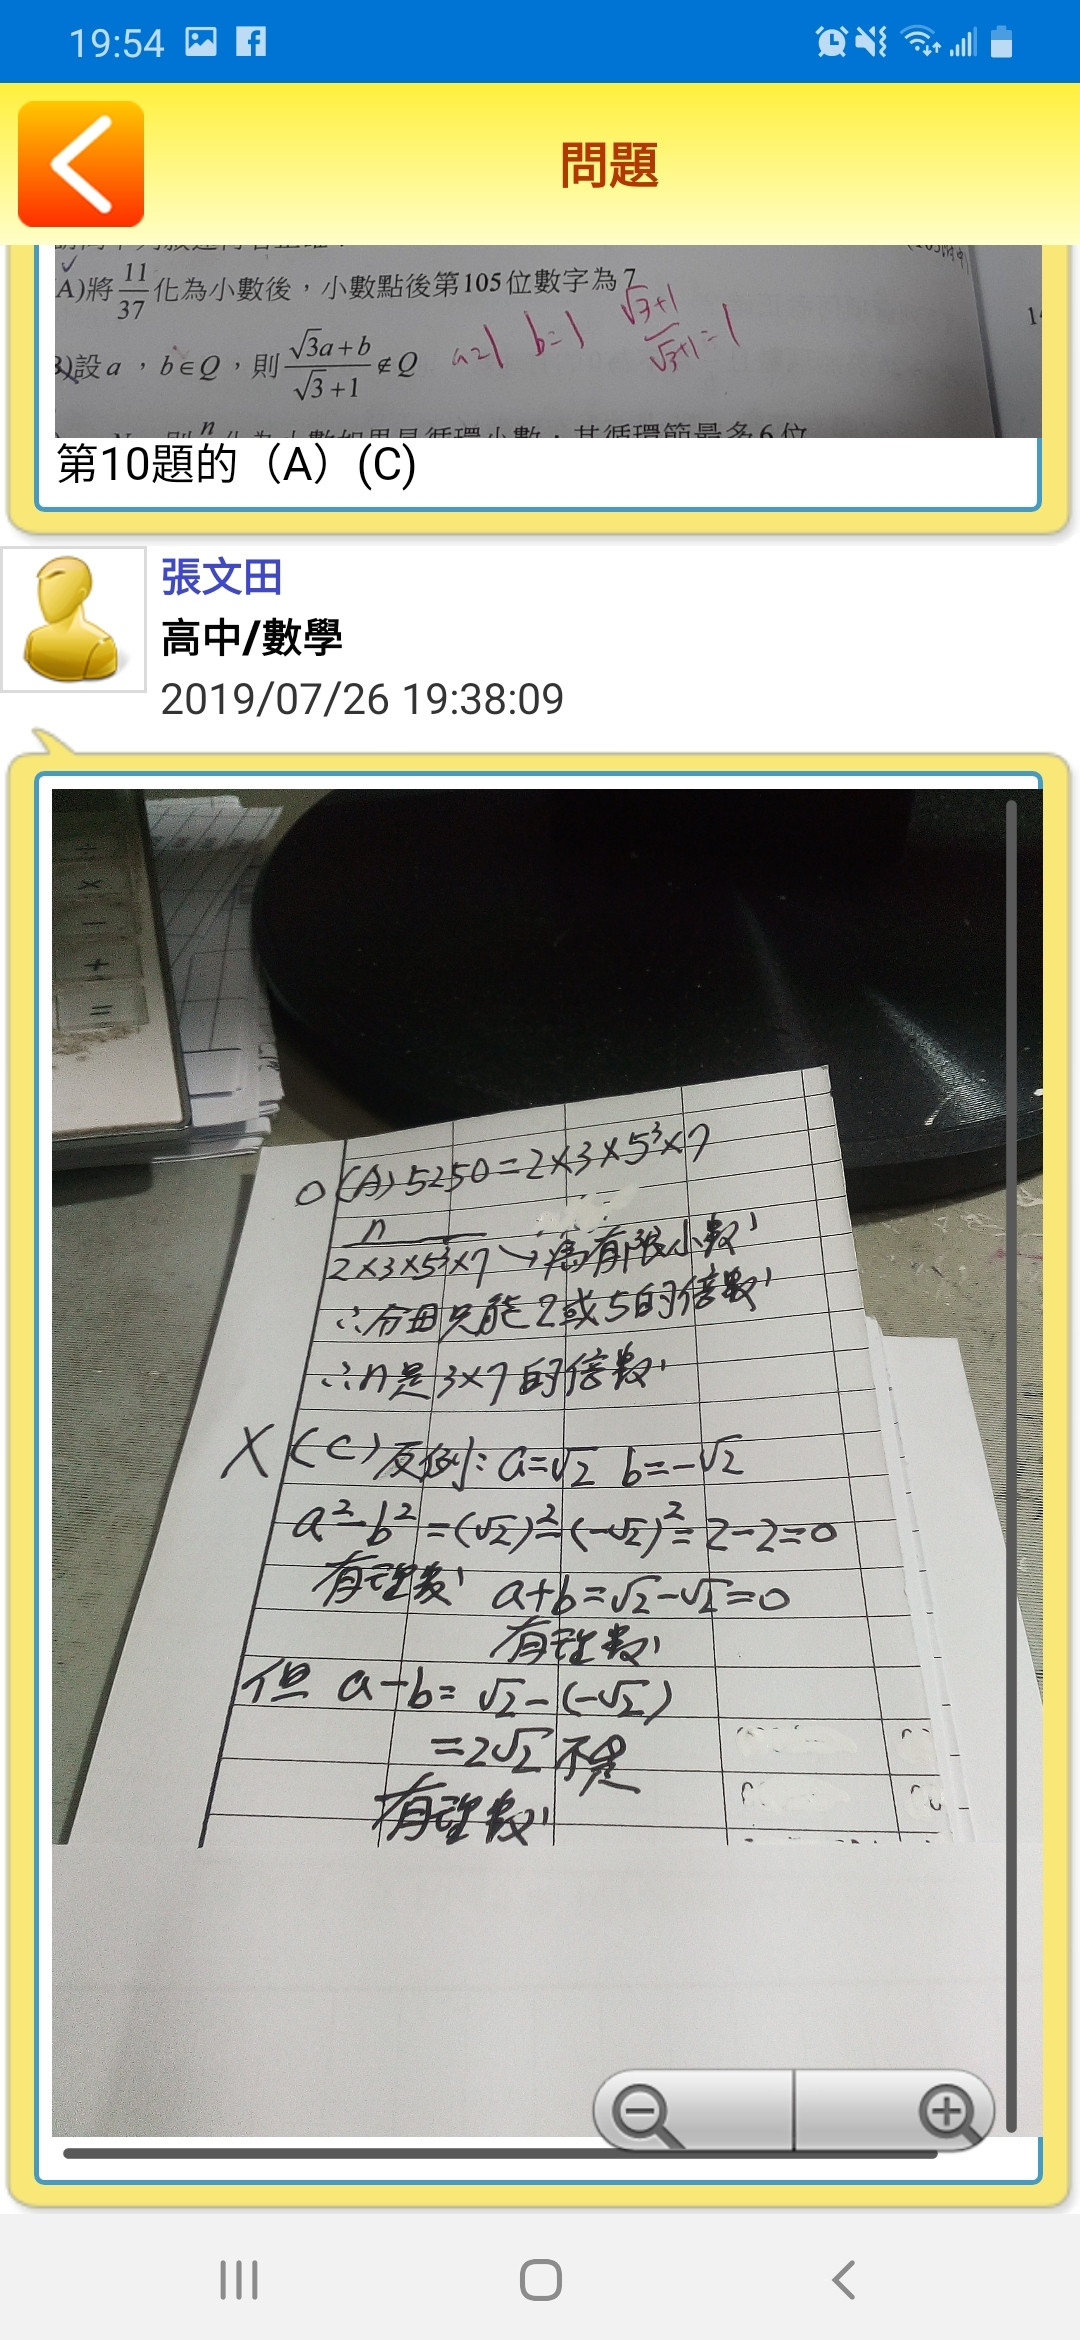 19:54
問題
A)將11/37化為小數後，小數點後第105位數字為7
√3+1/√3+1=1
B)設a，b∈Q，則√3a+b/√3+1∉Q a=1 b=1
第10題的（A）(C)
張文田
高中/數學
2019/07/26 19:38:09
÷
×
−
+
=
O(A) 5250=2×3×5³×7
n/2×3×5³×7→為有限小數
∴分母只能2或5的倍數
∴n是3×7的倍數
X(C)反例:a=√2 b=-√2
a²-b²=(√2)²-(-√2)²=2-2=0
有理數 a+b=√2-√2=0
有理數
但 a-b=√2-(-√2)
=2√2不是
有理數